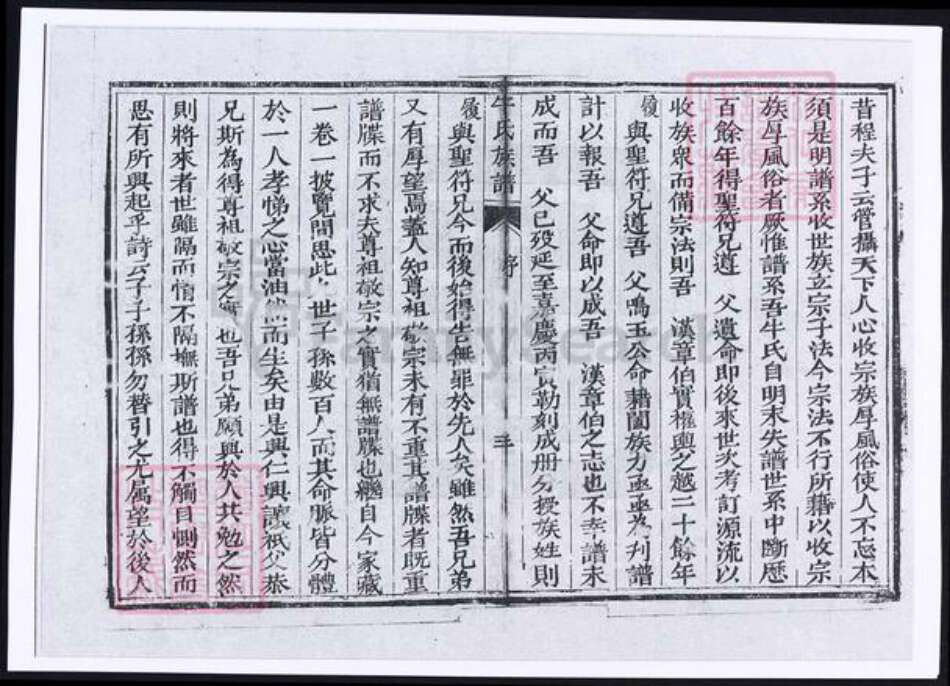 昔程夫子云管攝天下人心收宗族厚風俗使人不忘本
須是明譜系收世族立宗子法今宗法不行所藉以收宗
族厚風俗者厥惟譜系吾牛氏自明末失譜世系中斷歷
百餘年得聖符兄遵 父遺命即後來世次考訂源流以
收族衆而備宗法則吾 漢章伯實權輿之越二十餘年
後與聖符兄遵吾 父鳴玉公命藉闔族力亟亟為刋譜
計以報吾 父命即以成吾 漢章伯之志也不幸譜未
成而吾 父已歿延至嘉慶丙寅勒刻成册分授族姓則
牛氏族譜 序 三
後與聖符兄今而後始得告無罪於先人矣雖然吾兄弟
又有厚望焉蓋人知尊祖敬宗未有不重其譜牒者既重
譜牒而不求夫尊祖敬宗之實猶無譜牒也繼自今家藏
一卷一披覽間思此八世子孫數百人而其命脈皆分體
於一人孝悌之心當油然而生矣由是興仁興讓祇父恭
兄斯為得尊祖敬宗之實也吾兄弟願與族人共勉之然
則將來者世雖隔而情不隔撫斯譜也得不觸目惻然而
思有所興起乎詩云子子孫孫勿替引之尤属望於後人
FamilySearch